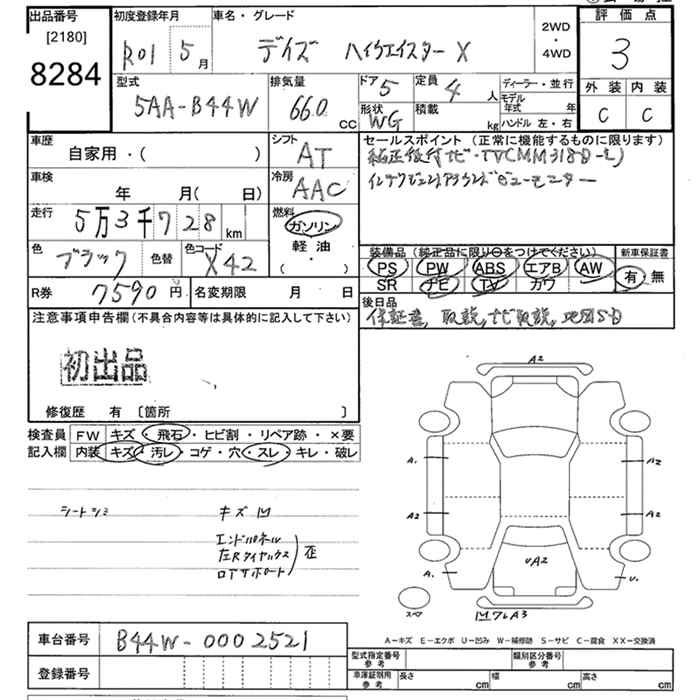 出品番号 初度登録年月 車名・グレード 評価点
[2180] 8284 R01 5月 デイズ ハイウェイスター X 2WD・4WD 3
型式 排気量 ドア 定員 ディーラー・並行 外装 内装
5AA-B44W 660 cc 5 4人 モデル年式 年 C C
形状 WG 積載 kg ハンドル 左・右
車歴 自家用・( ) シフト AT セールスポイント (正常に機能するものに限ります)
車検 年 月( 日) 冷房 AAC
走行 5万3千728km 燃料 ガソリン 軽油 ( ・ )
色 ブラック 色替 色コード X42 装備品 (純正品に限り○をつけてください) 新車保証書
PS PW ABS エアB AW 有・無
SR ナビ TV カワ
R券 7590円 名変期限 月 日 後日品
注意事項申告欄(不具合内容等は具体的に記入して下さい) 保証書, 取説, ナビ取説, 地図SD
初出品
修復歴 有 〔箇所 〕
検査員 FW キズ・飛石・ヒビ割・リペア跡・×要
記入欄 内装 キズ・汚レ・コゲ・穴・スレ・キレ・破レ
シートシミ キズ凹
エンドパネル
左Rタイヤハウス
ロアサポート
歪
A2
A1 A2
A2 A2
A1 U1
UA2
スペア
凹ワレA3
A-キズ E-エクボ U-凹み W-補修跡 S-サビ C-腐食 XX-交換済
車台番号 B44W-0002521 型式指定番号 参考 類別区分番号 参考
登録番号 車庫証明用 参考 長さ cm 幅 cm 高さ cm